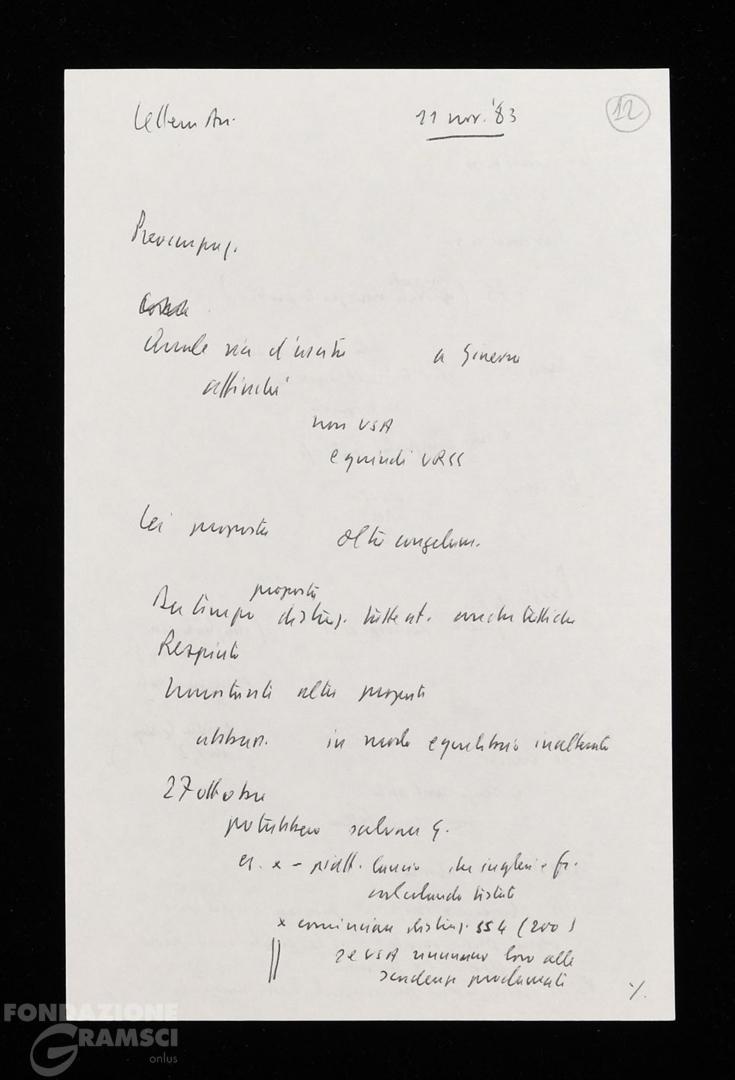 Lettera An. 11 nov. '83 12
Preoccupaz.
Quale via d'uscita a Ginevra
affinché
non USA
e quindi URSS
Lei proposta oltre congelam.
proposta
Da tempo distruz. tutte at. anche tattiche
Respinta
Innostanti altre proposte
in modo equilibrio inalterato
27 ottobre
potrebbero salvare G.
es. x - piatt. lancio che inglesi e fr.
calcolando testate
x cominciare distruz. SS4 (200)
se USA rinunciano loro alle
scadenze proclamate
%.
FONDAZIONE
GRAMSCI
onlus